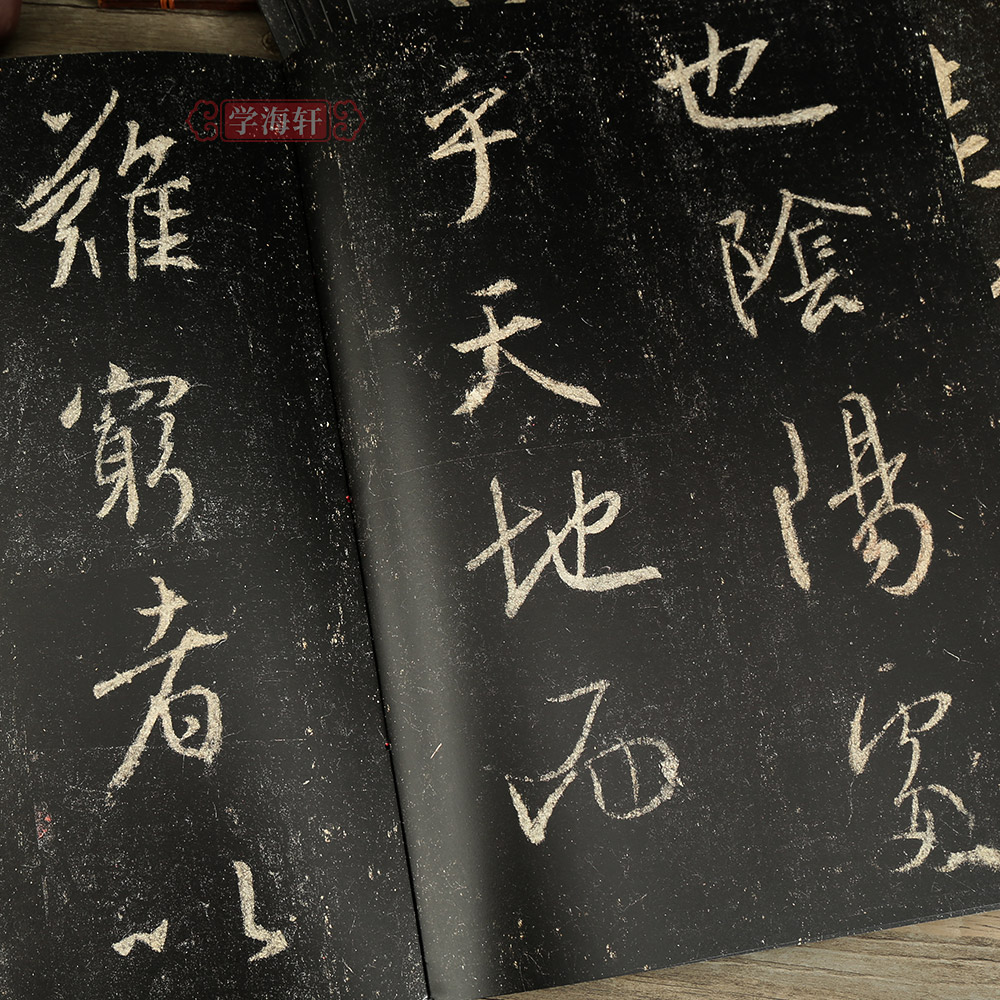 也陰陽處
乎天地而
難窮者以
学海轩